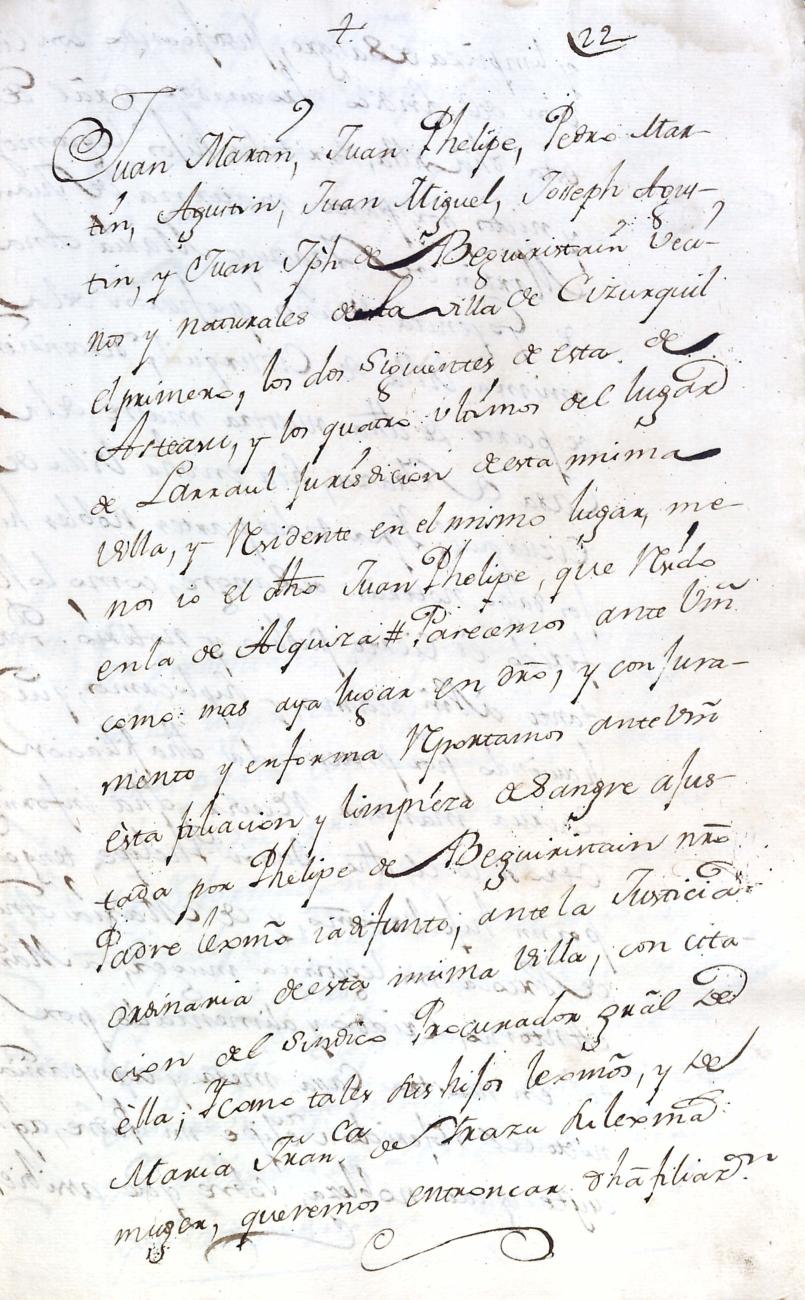 + 22
Juan Martin, Juan Phelipe, Pedro Mar-
tin, Agustin, Juan Miguel, Joseph Agus-
tin, y Juan Jph de Beguiristain veci-
nos y naturales de la villa de Cizurquil
el primero, los dos siguientes de esta de
Asteasu, y los quatro vltimos del lugar
de Larraul Jurisdicion de esta misma
villa, y Residente en el mismo lugar, me-
nos io el dho Juan Phelipe, que Resido
en la de Alquiza # Parecemos ante Vm̃
como mas aya lugar en dr̃o, y con Jura-
mento y enforma Reportamos ante Vm̃
esta filiacion y limpieza de Sangre ajus-
tada por Phelipe de Beguiristain nr̃o
Padre lexmo ia difunto, ante la Justicia
ordinaria de esta misma villa, con cita-
cion del Sindico Procurador gral de
ella; Y como tales sus hijos lexmos, y de
Maria Franca de Yrazu su lexma
muger, queremos entroncar dha filiaz.on